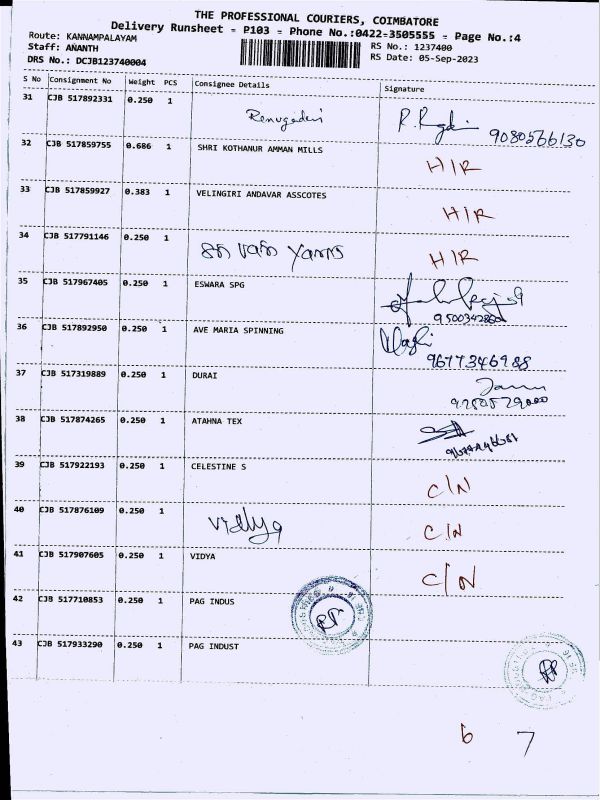 THE PROFESSIONAL COURIERS, COIMBATORE
Delivery Runsheet = P103 = Phone No.:0422=3505555 = Page No.:4
Route: KANNAMPALAYAM
Staff: ANANTH
RS No.: 1237400
DRS No.: DCJB123740004
RS Date: 05-Sep-2023
S No Consignment No Weight PCS Consignee Details Signature
31 CJB 517892331 0.250 1 Renugadevi 9080566130
32 CJB 517859755 0.686 1 SHRI KOTHANUR AMMAN MILLS H/R
33 CJB 517859927 0.383 1 VELINGIRI ANDAVAR ASSCOTES H/R
34 CJB 517791146 0.250 1 Yarns H/R
35 CJB 517967405 0.250 1 ESWARA SPG
36 CJB 517892950 0.250 1 AVE MARIA SPINNING 9677346988
37 CJB 517319889 0.250 1 DURAI
38 CJB 517874265 0.250 1 ATAHNA TEX
39 CJB 517922193 0.250 1 CELESTINE S C/N
40 CJB 517876109 0.250 1 Vidhya C/N
41 CJB 517907605 0.250 1 VIDYA C/N
42 CJB 517710853 0.250 1 PAG INDUS
43 CJB 517933290 0.250 1 PAG INDUST
6 7